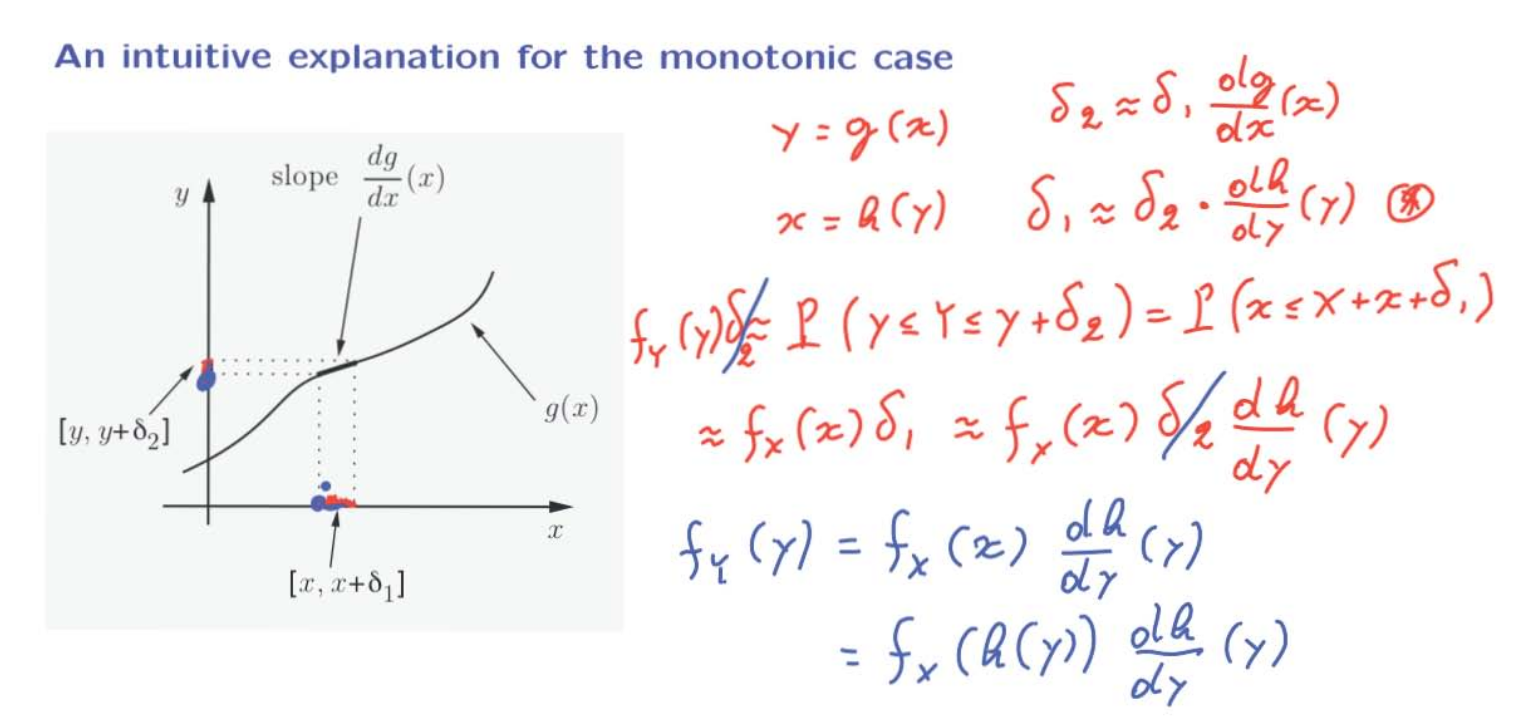 An intuitive explanation for the monotonic case
slope dg/dx (x)
y
[y, y+δ₂]
g(x)
x
[x, x+δ₁]
y = g(x)   δ₂ ≈ δ₁ dg/dx (x)
x = h(y)   δ₁ ≈ δ₂ · dh/dy (y) ⊛
f_Y (y) δ₂ ≈ P (y ≤ Y ≤ y + δ₂) = P (x ≤ X + x + δ₁)
≈ f_X (x) δ₁ ≈ f_X (x) δ₂ dh/dy (y)
f_Y (y) = f_X (x) dh/dy (y)
= f_X (h(y)) dh/dy (y)